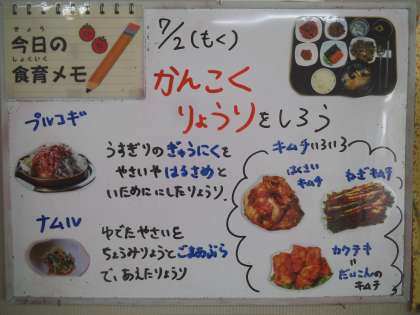 きょう
今日の
しょくいく
食育メモ
7/2(もく)
かんこく
りょうりをしろう
プルコギ
うすぎりのぎゅうにくを
やさいやはるさめと
いためににしたりょうり.
ナムル
ゆでたやさいを
ちょうみりょうとごまあぶら
で、あえたりょうり
キムチいろいろ
はくさい
キムチ
ねぎキムチ
カクテキ
=
だいこんの
キムチ